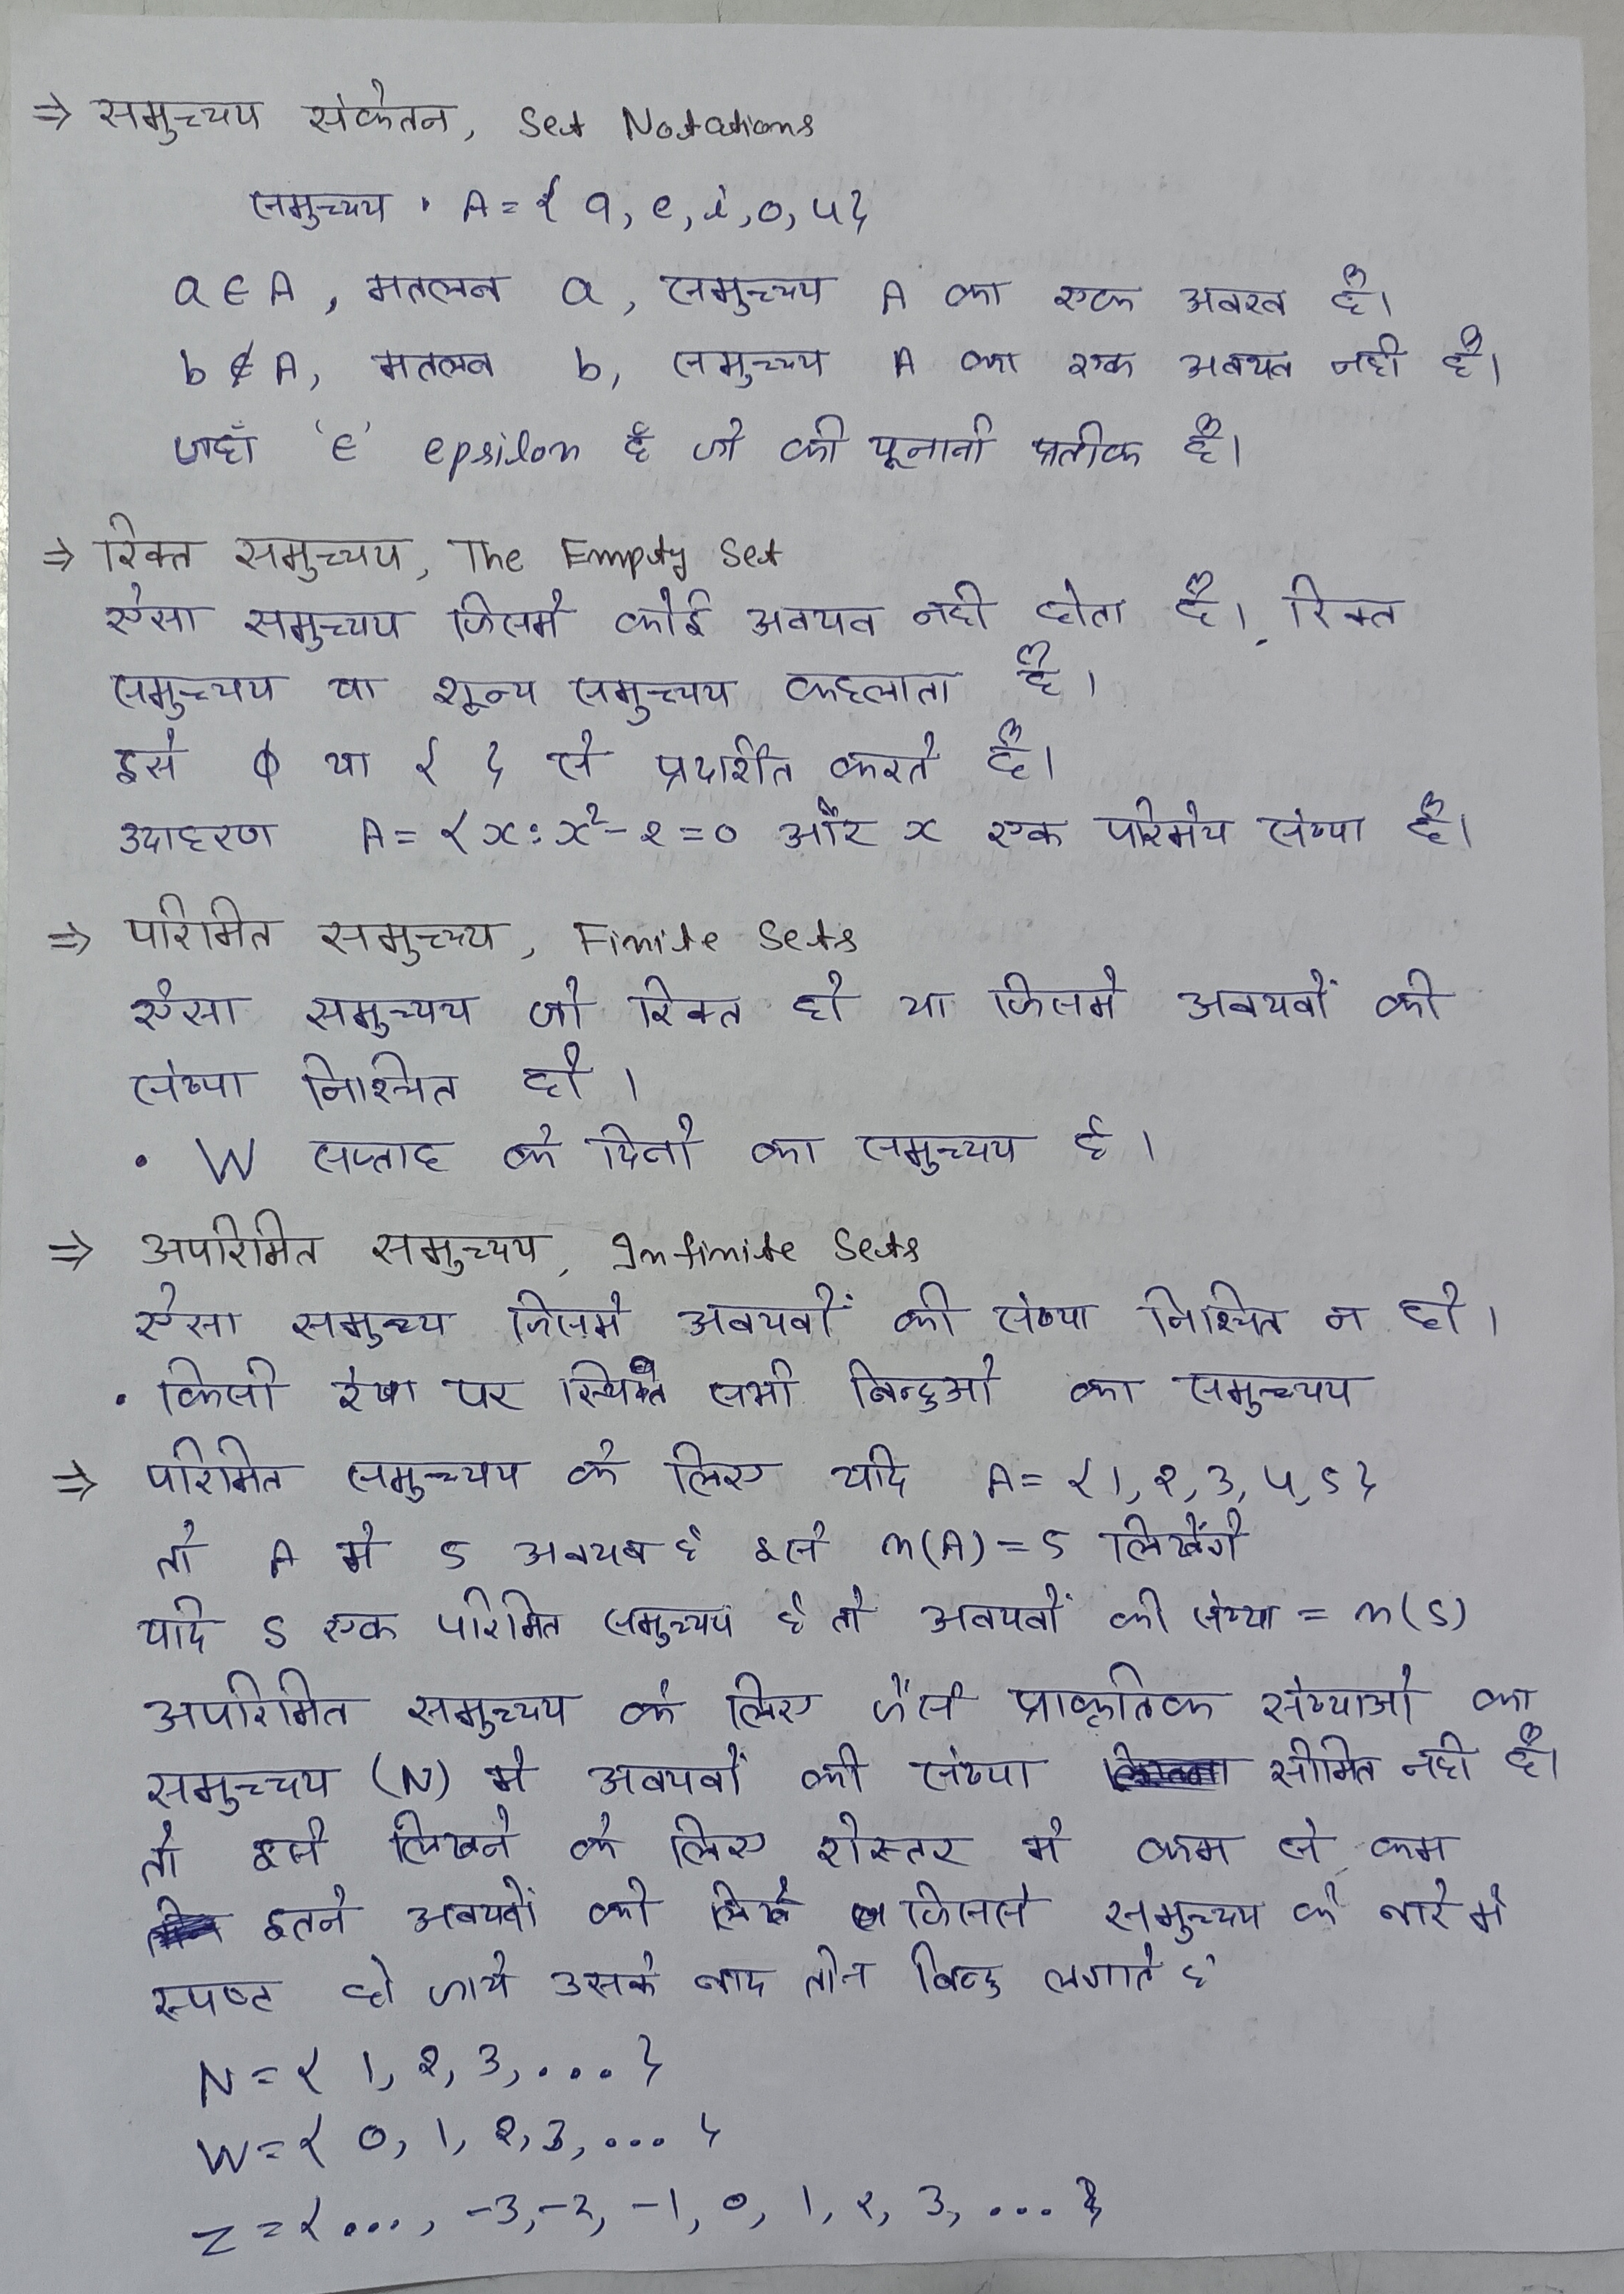 ⇒ समुच्चय संकेतन, Set Notations
समुच्चय · A = { a, e, i, o, u }
a ∈ A, मतलब a, समुच्चय A का एक अवयव है।
b ∉ A, मतलब b, समुच्चय A का एक अवयव नही है।
जहाँ '∈' epsilon है जो की यूनानी प्रतीक है।
⇒ रिक्त समुच्चय, The Empty Set
ऐसा समुच्चय जिसमे कोई अवयव नही होता है। रिक्त
समुच्चय या शून्य समुच्चय कहलाता है।
इसे ϕ या { } से प्रदर्शित करते है।
उदाहरण A = { x : x² - 2 = 0 और x एक परिमेय संख्या है।
⇒ परिमित समुच्चय, Finite Sets
ऐसा समुच्चय जो रिक्त हो या जिसमे अवयवों की
संख्या निश्चित हो।
• W सप्ताह के दिनो का समुच्चय है।
⇒ अपरिमित समुच्चय, Infinite Sets
ऐसा समुच्य जिसमे अवयवों की संख्या निश्चित न हो।
• किसी रेखा पर स्थित सभी बिन्दुओ का समुच्चय
⇒ परिमित समुच्चय के लिए यदि A = { 1, 2, 3, 4, 5 }
तो A मे 5 अवयव है इसे n(A) = 5 लिखेंगे
यदि S एक परिमित समुच्चय है तो अवयवों की संख्या = n(S)
अपरिमित समुच्चय के लिए जैसे प्राकृतिक संख्याओ का
समुच्चय (N) मे अवयवों की संख्या सीमित नही है।
तो इसे लिखने के लिए रोस्तर मे कम से कम
इतने अवयवों को लिखे जिससे समुच्चय के बारे मे
स्पष्ट हो जाये उसके बाद तीन बिन्दु लगाते है
N = { 1, 2, 3, ... }
W = { 0, 1, 2, 3, ... }
Z = { ..., -3, -2, -1, 0, 1, 2, 3, ... }